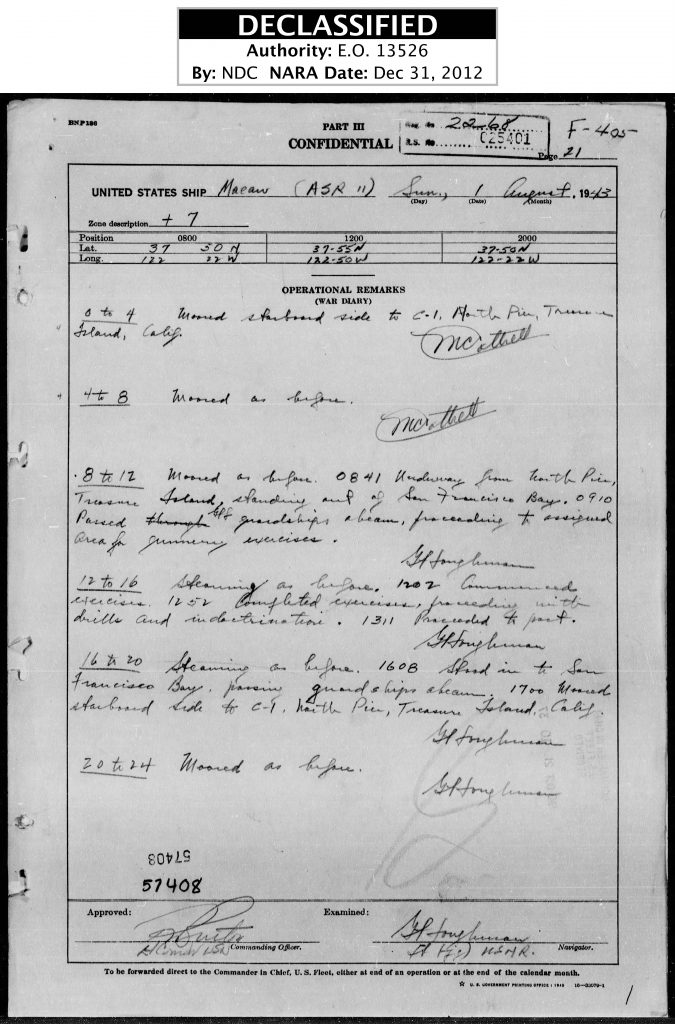 DECLASSIFIED
Authority: E.O. 13526
By: NDC NARA Date: Dec 31, 2012
BNP186
PART III
CONFIDENTIAL
Reg. No. 22-68
R.S. No. 025401
F-405
Page 21
UNITED STATES SHIP Macaw (ASR 11) Sun., 1 August, 1943
(Day) (Date) (Month)
Zone description + 7
Position 0800 1200 2000
Lat. 37 50 N 37-55N 37-50N
Long. 122 22 W 122-50W 122-22W
OPERATIONAL REMARKS
(WAR DIARY)
0 to 4 Moored starboard side to C-1, North Pier, Treasure
Island, Calif.
4 to 8 Moored as before.
8 to 12 Moored as before. 0841 Underway from North Pier,
Treasure Island, standing out of San Francisco Bay. 0910
Passed through guardships abeam, proceeding to assigned
area for gunnery exercises.
12 to 16 Steaming as before. 1202 Commenced
exercises. 1252 Completed exercises, proceeding with
drills and indoctrination. 1311 Proceeded to port.
16 to 20 Steaming as before. 1608 Stood in to San
Francisco Bay, passing guardships abeam. 1700 Moored
starboard side to C-1, North Pier, Treasure Island, Calif.
20 to 24 Moored as before.
57408
57408
Approved: Examined:
Commanding Officer. Navigator.
Lt (jg) USNR.
To be forwarded direct to the Commander in Chief, U. S. Fleet, either at end of an operation or at the end of the calendar month.
☆ U. S. GOVERNMENT PRINTING OFFICE : 1943
1